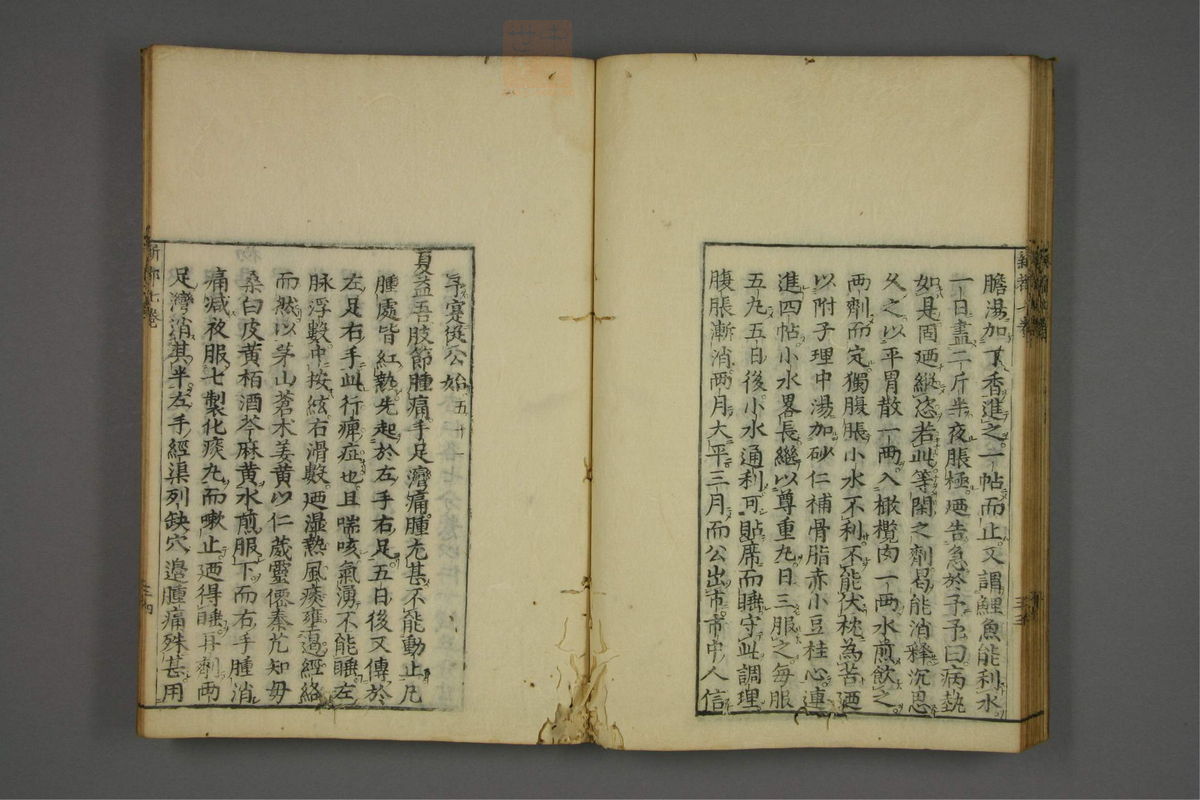 膽湯加丁香進之一帖而止又謂鯉魚能利水
一日盡二斤半夜脹極廼告急於予予曰病埶
如是固廼縱恣若此等閑之劑曷能消釋沉思
乆之以平胃散一兩入橄欖肉一兩水煎飲之
兩劑而定獨腹脹小水不利不能伏枕為苦廼
以附子理中湯加砂仁補骨脂赤小豆桂心連
進四帖小水畧長繼以尊重丸日三服之每服
五丸五日後小水通利可貼席而睡守此調理
腹脹漸消兩月大平三月而公出市市中人信
予寔從公始 五十一
夏益吾肢節腫痛手足灣痛腫尢甚不能動止凡
腫處皆紅熱先起於左手右足五日後又傳於
左足右手此行痺症也且喘咳氣湧不能睡左
脉浮數中按絃右滑數廼濕熱風痰壅遏經絡
而然以茅山蒼木姜黄以仁葳靈僊秦艽知毋
桑白皮黄栢酒芩麻黄水煎服下而右手腫消
痛减夜服七製化痰丸而嗽止廼得睡再劑兩
足灣消其半左手經渠列缺穴邊腫痛殊甚用